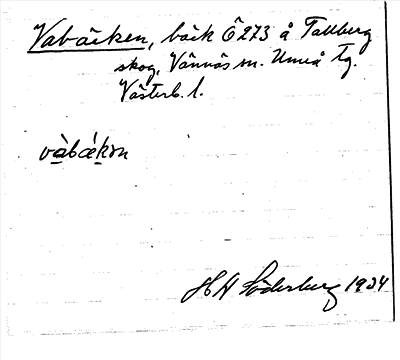 Vabäcken, bäck Ö 273 å Tallberg
skog, Vännäs sn. Umeå tg.
Västerb. l.
vàbǽkən
H A Söderberg 1934